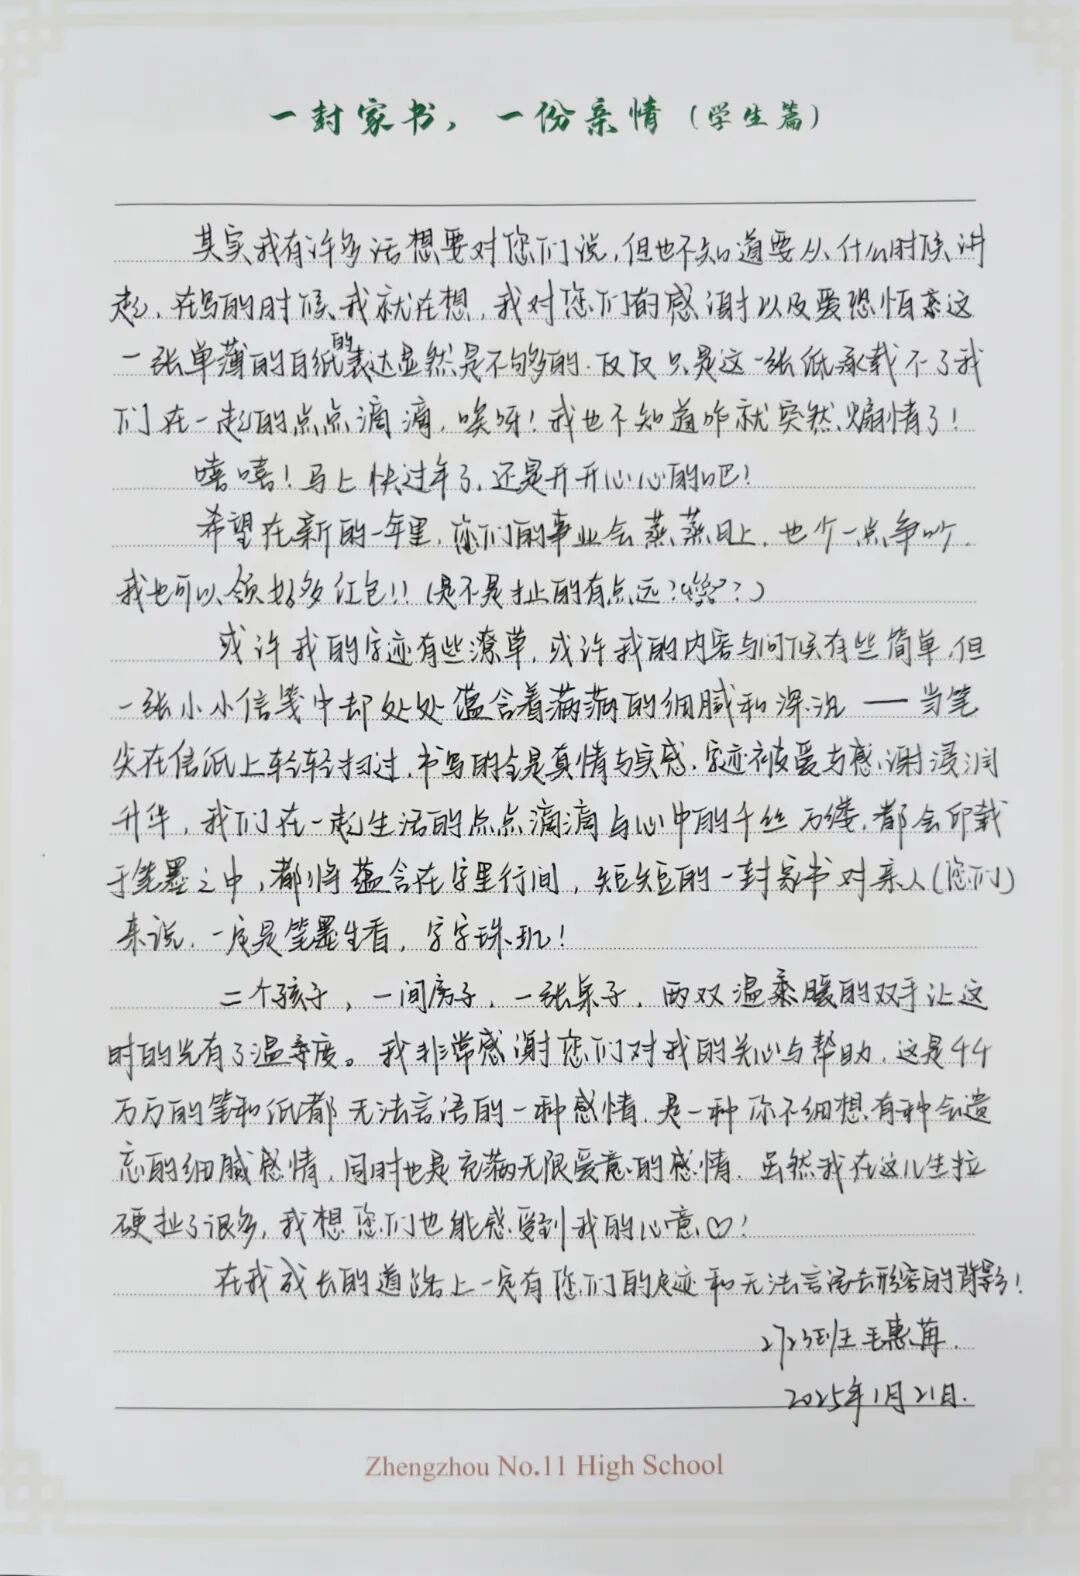 一封家书，一份亲情（学生篇）
其实我有许多话想要对您们说，但也不知道要从什么时候讲
起，在写的时候，我就在想，我对您们的感谢以及爱恐怕靠这
一张单薄的白纸的表达显然是不够的，仅仅只是这一张纸承载不了我
们在一起的点点滴滴，唉呀！我也不知道咋就突然煽情了！
嘻嘻！马上快过年了，还是开开心心的吧！
希望在新的一年里，您们的事业会蒸蒸日上，也少一点争吵，
我也可以领好多红包!!（是不是扯的有点远？??）
或许我的字迹有些潦草，或许我的内容与问候有些简单，但
一张小小信笺中却处处蕴含着满满的细腻和深沉——当笔
尖在信纸上轻轻扫过，书写的全是真情与实感，字迹被爱与感谢浸润
升华，我们在一起生活的点点滴滴与心中的千丝万缕，都会印载
于笔墨之中，都将蕴含在字里行间，短短的一封家书对亲人（您们）
来说，一定是笔墨生香，字字珠玑！
二个孩子，一间房子，一张桌子，两双温柔暖的双手让这
时的光有了温度。我非常感谢您们对我的关心与帮助，这是千
万万的笔和纸都无法言语的一种感情，是一种你不细想有种会遗
忘的细腻感情，同时也是充满无限爱意的感情，虽然我在这儿生拉
硬扯了很多，我想您们也能感受到我的心意♡！
在我成长的道路上一定有您们的足迹和无法言语去形容的背影！
2723班王毛惠苒.
2025年1月21日.
Zhengzhou No.11 High School